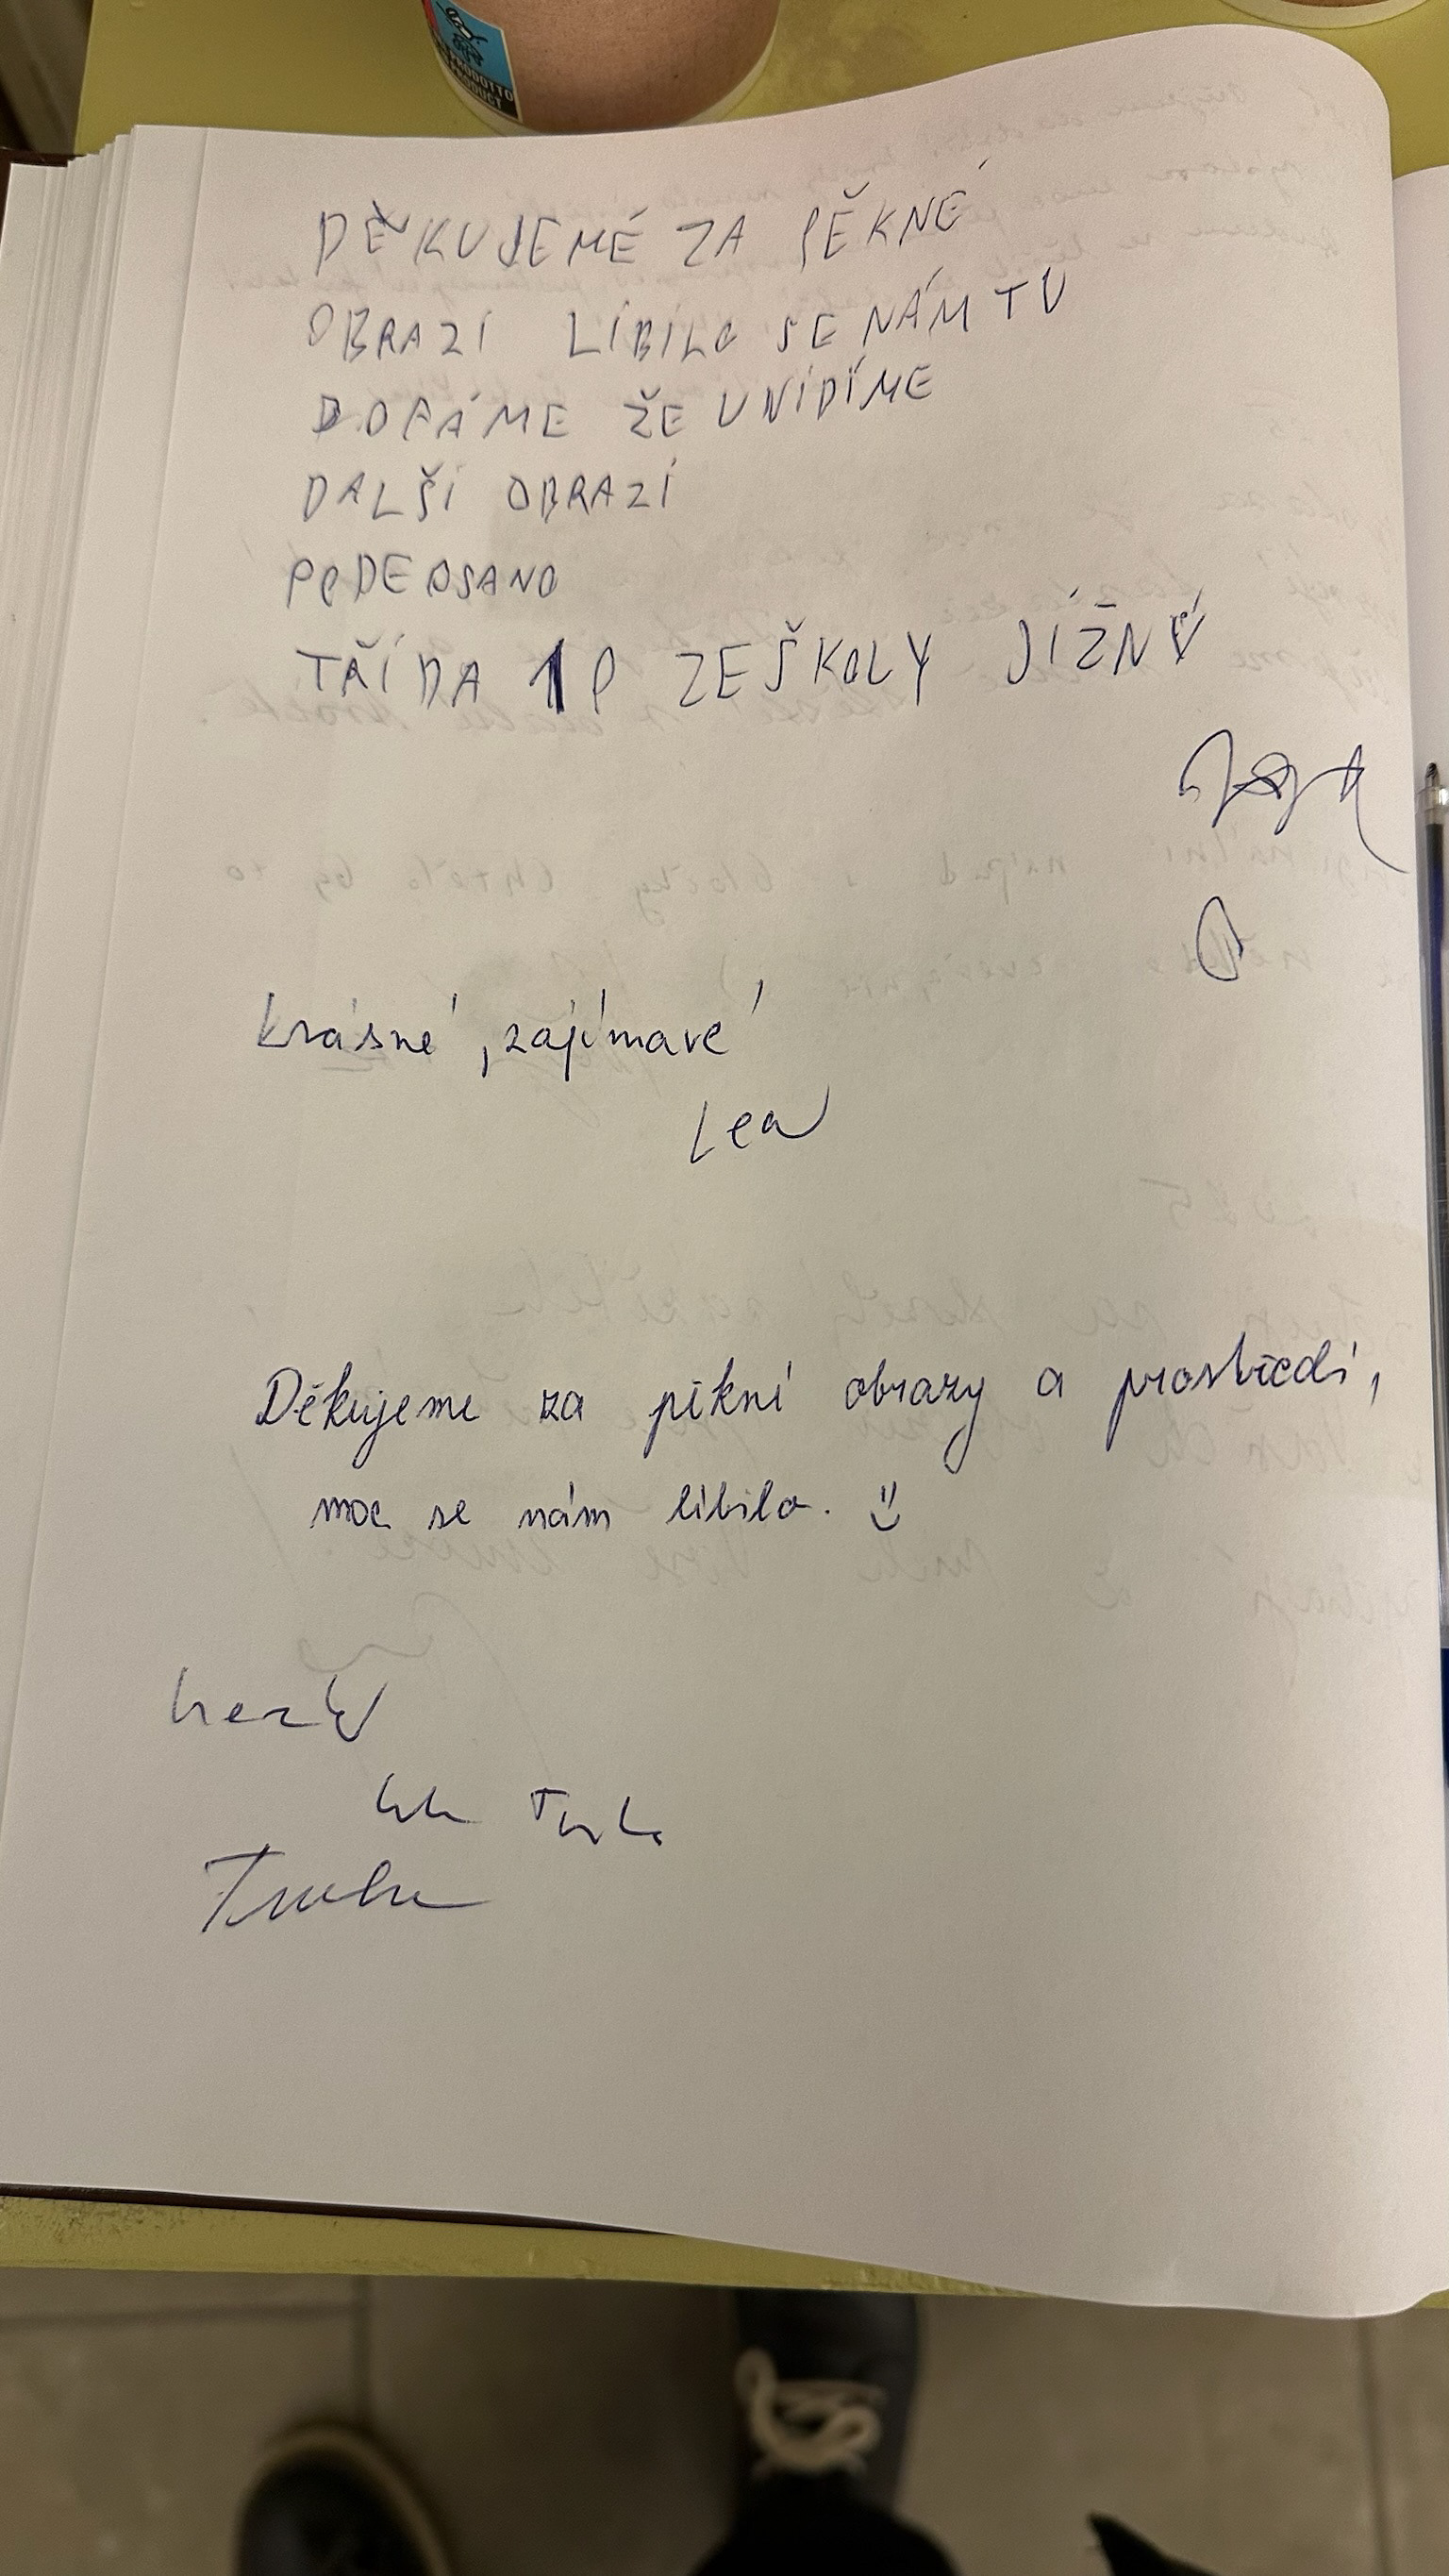 PRODOTTO
PRODUCT
DĚKUJEMÉ ZA PĚKNÉ
OBRAZÍ LÍBÍLO SE NÁM TU
DOFÁME ŽE UVÍDÍME
DALŠÍ OBRAZÍ
PODEPSANO
TŘÍDA 1P ZEŠKOLY JÍŽNÝ
krásné, zajímavé
Lea
Děkujeme za pěkné obrazy a prostředí,
moc se nám líbilo.